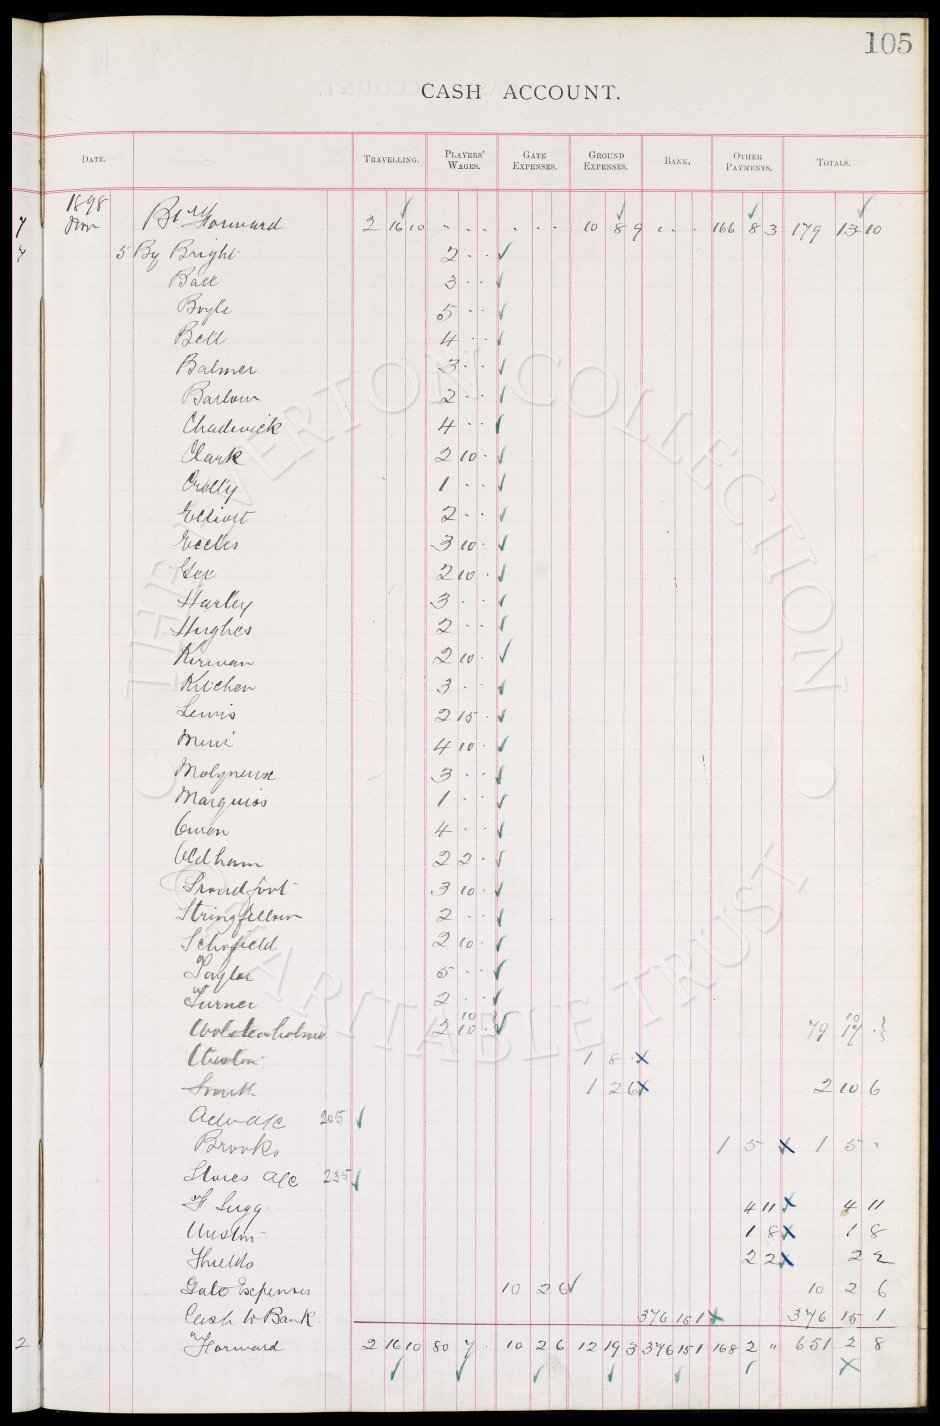 105
CASH ACCOUNT.
DATE. TRAVELLING. PLAYERS' WAGES. GATE EXPENSES. GROUND EXPENSES. BANK. OTHER PAYMENTS. TOTALS.
1898
Nov Bt Forward 2 16 10 " . . . . . 10 8 9 . . . 166 8 3 179 13 10
5 By Bright 2 . .
Ball 3 . .
Boyle 5 . .
Bell 4 . .
Balmer 3 . .
Barlow 2 . .
Chadwick 4 . .
Clark 2 10 .
Crelly 1 . .
Elliott 2 . .
Eccles 3 10 .
Gee 2 10 .
Hartley 3 . .
Hughes 2 . .
Kirwan 2 10 .
Kitchen 3 . .
Lewis 2 15 .
Muir 4 10 .
Molyneux 3 . .
Marquiss 1 . .
Owen 4 . .
Oldham 2 2 .
Proudfoot 3 10 .
Stringfellow 2 . .
Schofield 2 10 .
Taylor 5 . .
Turner 2 . .
Wolstenholme 2 10 . 79 17 .
10 10
1 8 .
1 2 6 2 10 6
a/c 205
Brooks 1 5 1 5 "
Stores a/c 235
F Sugg 4 11 4 11
1 8 1 8
Shields 2 2 2 2
Gate Expenses 10 2 6 10 2 6
Cash to Bank 376 15 1 376 15 1
Forward 2 16 10 80 7 . 10 2 6 12 19 3 376 15 1 168 2 " 651 2 8
THE EVERTON COLLECTION
CHARITABLE TRUST